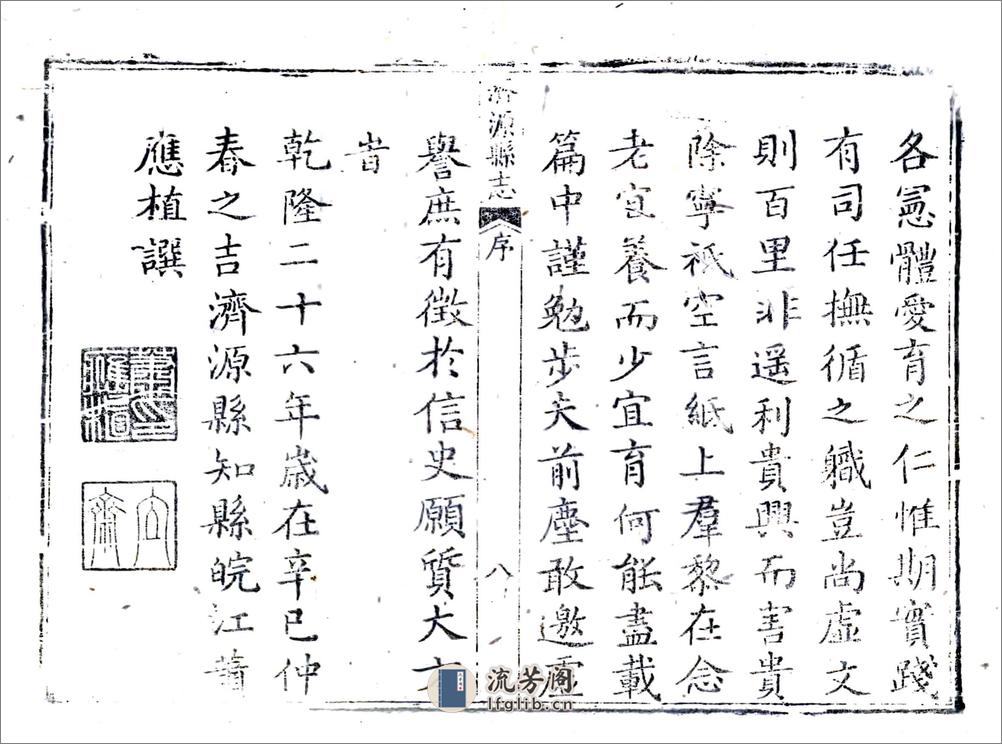 各憲體愛育之仁惟期實踐
有司任撫循之職豈尚虛文
則百里非遥利貴興而害貴
除寧祗空言紙上羣黎在念
老宜養而少宜育何能盡載
篇中謹勉步夫前塵敢邀虛
濟源縣志 序 八
譽庶有徵於信史願質大方
旹
乾隆二十六年歲在辛巳仲
春之吉濟源縣知縣皖江蕭
應植譔
蕭應植印
立齋
流芳阁
lfglib.cn